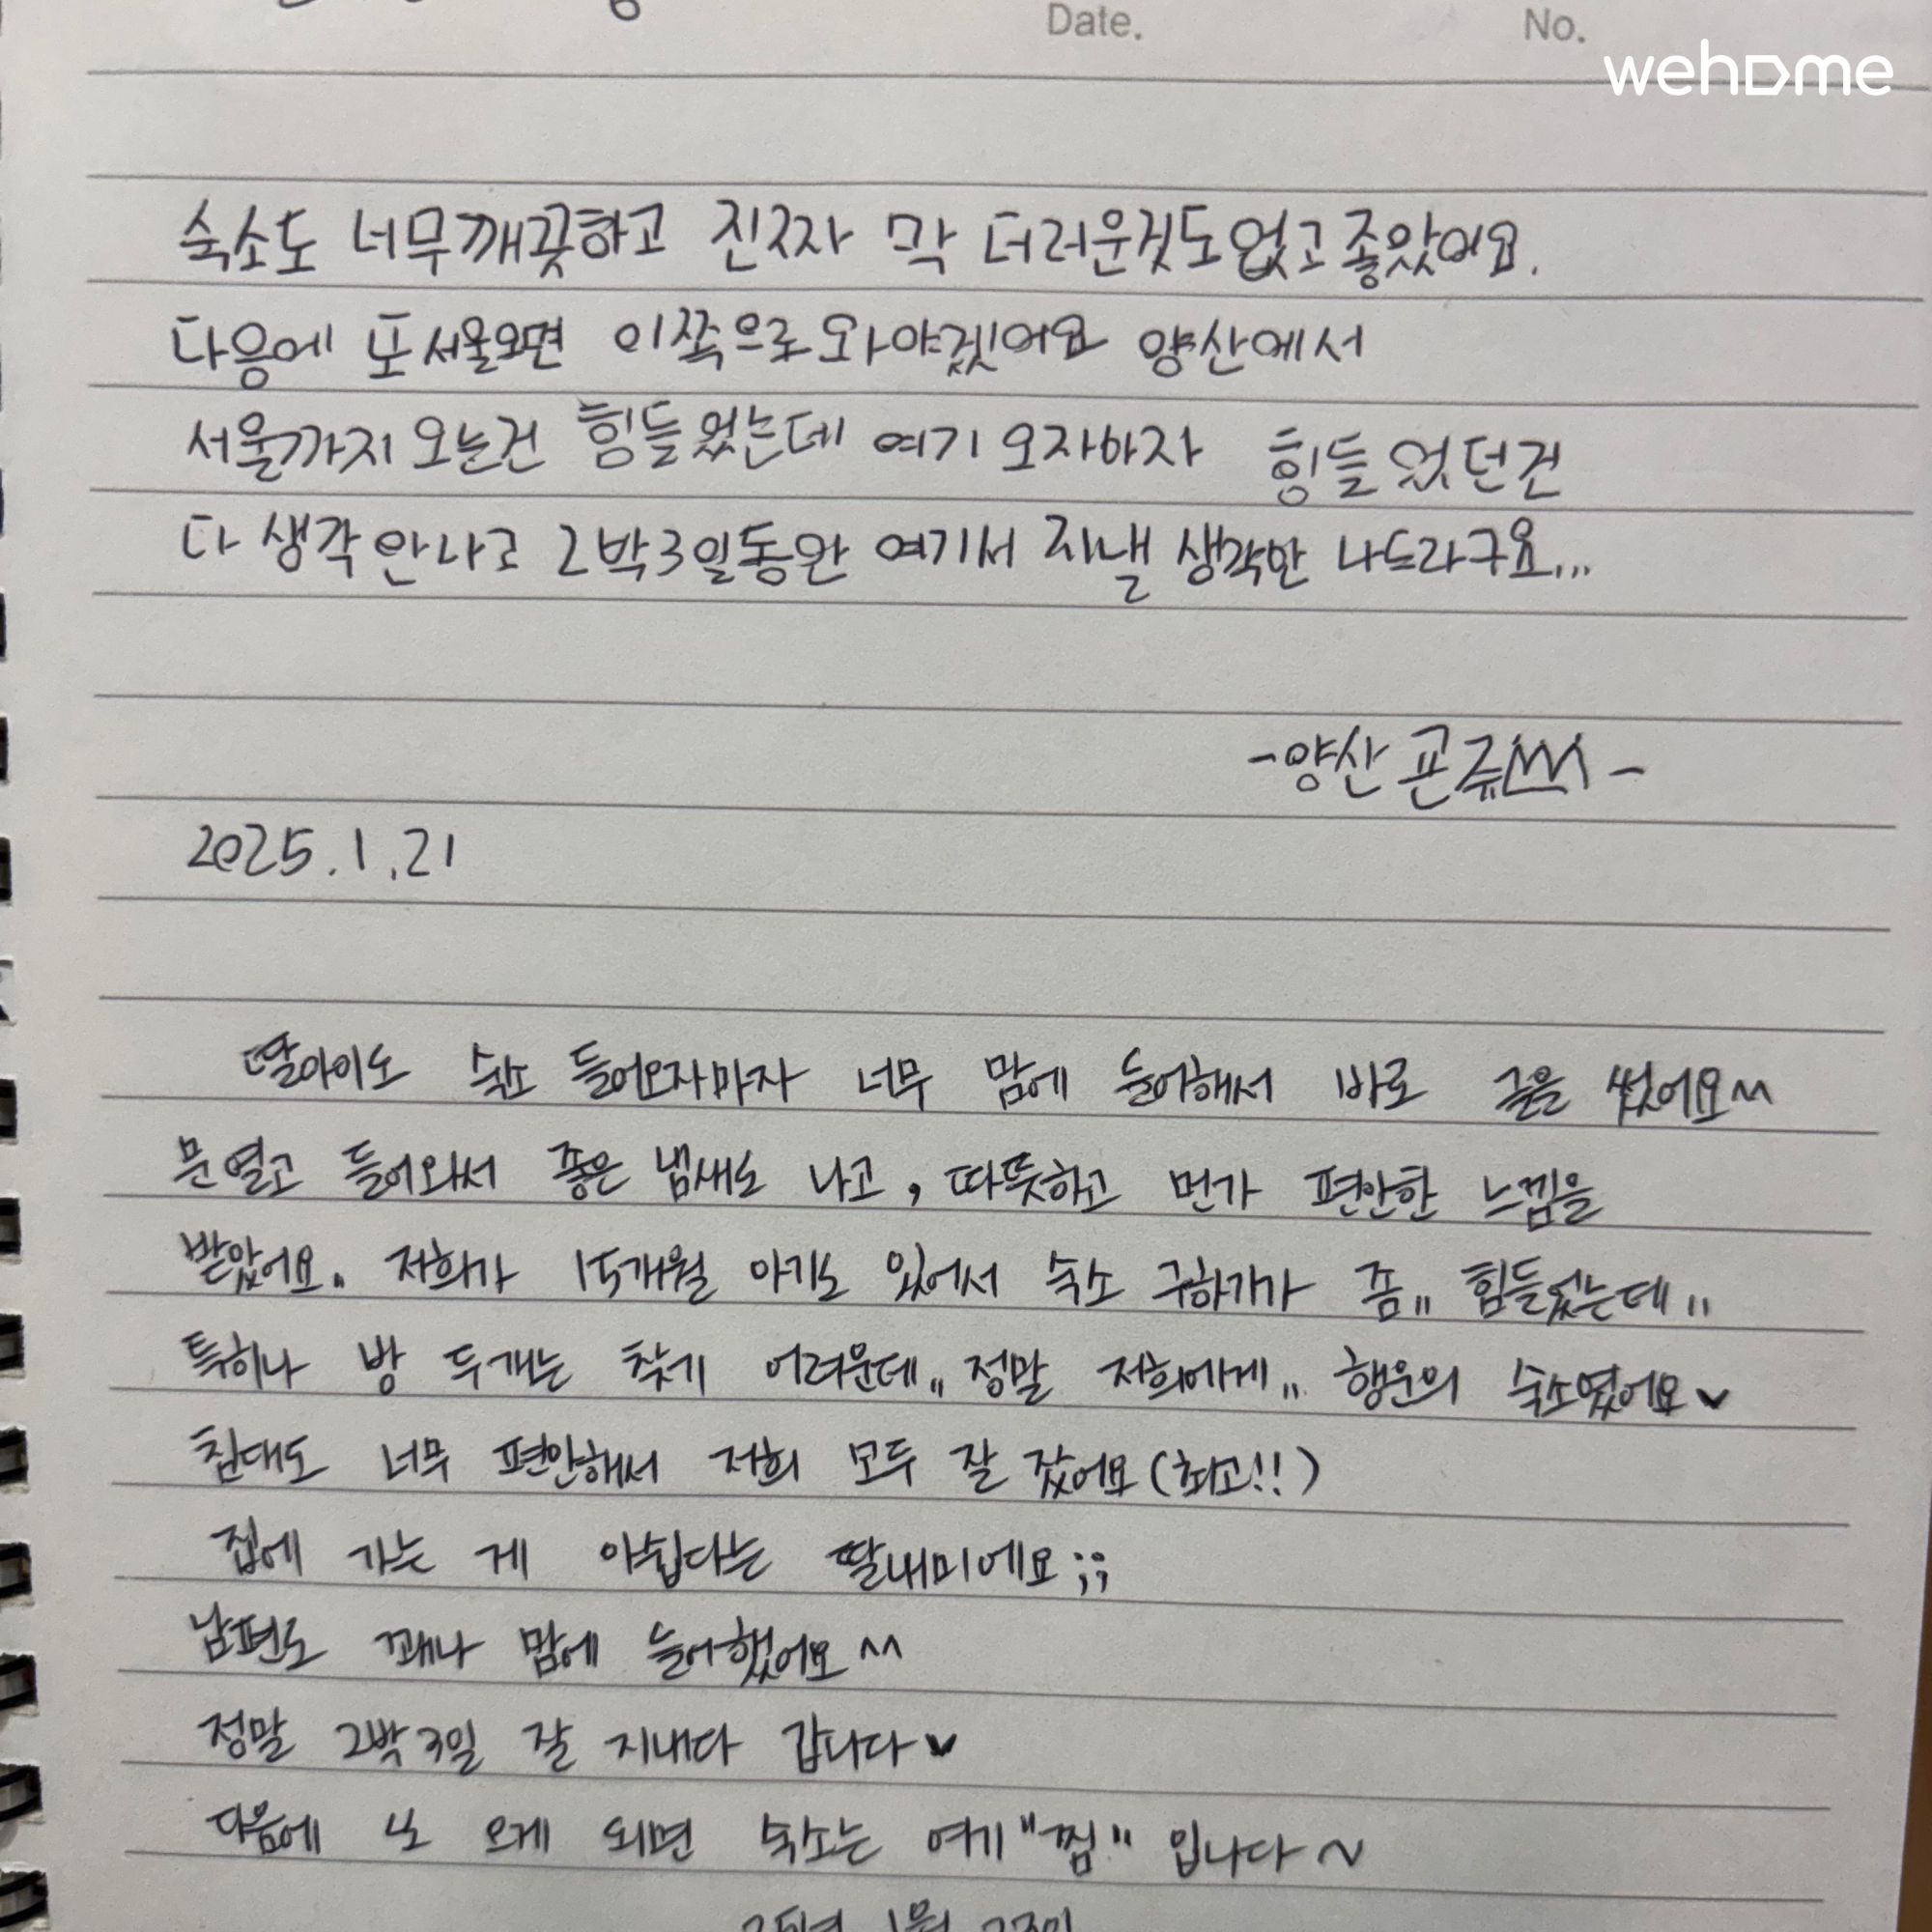 Date. No.
wehome
숙소도 너무깨끗하고 진짜 막 더러운것도없고좋았어요.
다음에 또서울오면 이쪽으로와야겠어요 양산에서
서울까지오는건 힘들었는데 여기오자마자 힘들었던건
다 생각안나고 2박3일동안 여기서 지낼 생각만 나드라구요...
-양산
2025.1.21
딸아이도 숙소 들어오자마자 너무 맘에 들어해서 바로 글을 썼어요^^
문열고 들어와서 좋은 냄새도 나고, 따뜻하고 먼가 편안한 느낌을
받았어요.. 저희가 15개월 아기도 있어서 숙소 구하기가 좀.. 힘들었는데..
특히나 방 두개는 찾기 어려운데.. 정말 저희에게.. 행운의 숙소였어요♥
침대도 너무 편안해서 저희 모두 잘 잤어요(최고!!)
집에 가는 게 아쉽다는 딸내미에요;;
남편도 꽤나 맘에 들어했어요^^
정말 2박3일 잘 지내다 갑니다♥
다음에 또 오게 되면 숙소는 여기"찜"입니다~